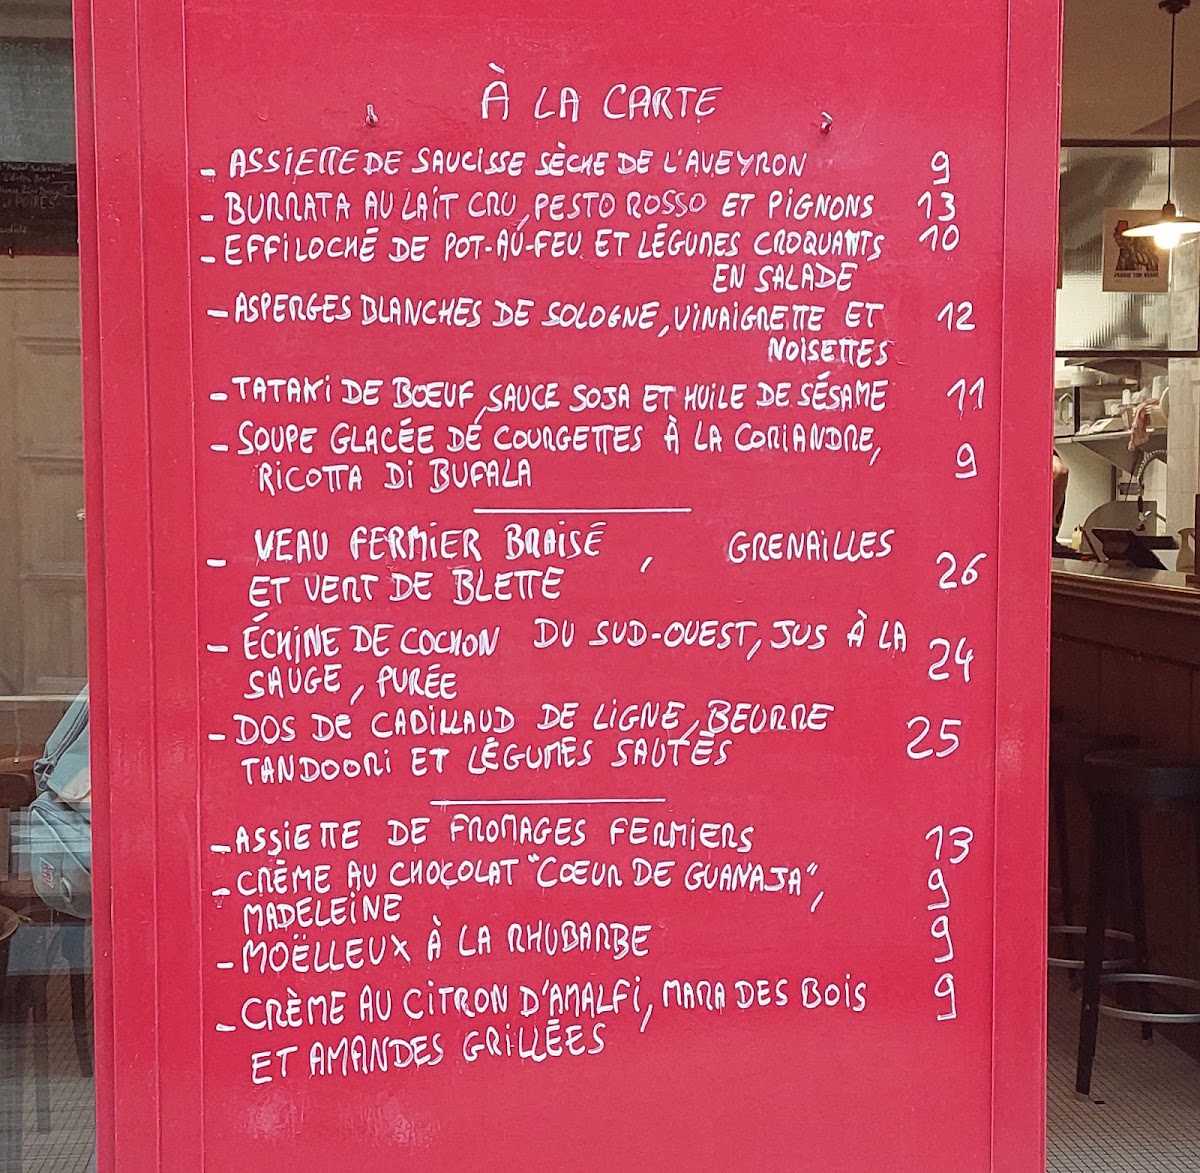 À LA CARTE
- ASSIETTE DE SAUCISSE SÈCHE DE L'AVEYRON 9
- BURRATA AU LAIT CRU, PESTO ROSSO ET PIGNONS 13
- EFFILOCHÉ DE POT-AU-FEU ET LÉGUMES CROQUANTS 10
EN SALADE
- ASPERGES BLANCHES DE SOLOGNE, VINAIGRETTE ET 12
NOISETTES
- TATAKI DE BŒUF, SAUCE SOJA ET HUILE DE SÉSAME 11
- SOUPE GLACÉE DE COURGETTES À LA CORIANDRE,
RICOTTA DI BUFALA 9
- VEAU FERMIER BRAISÉ, GRENAILLES
ET VERT DE BLETTE 26
- ÉCHINE DE COCHON DU SUD-OUEST, JUS À LA
SAUGE, PURÉE 24
- DOS DE CABILLAUD DE LIGNE, BEURRE
TANDOORI ET LÉGUMES SAUTÉS 25
- ASSIETTE DE FROMAGES FERMIERS 13
- CRÈME AU CHOCOLAT "CŒUR DE GUANAJA", 9
MADELEINE
- MOËLLEUX À LA RHUBARBE 9
- CRÈME AU CITRON D'AMALFI, MARA DES BOIS 9
ET AMANDES GRILLÉES